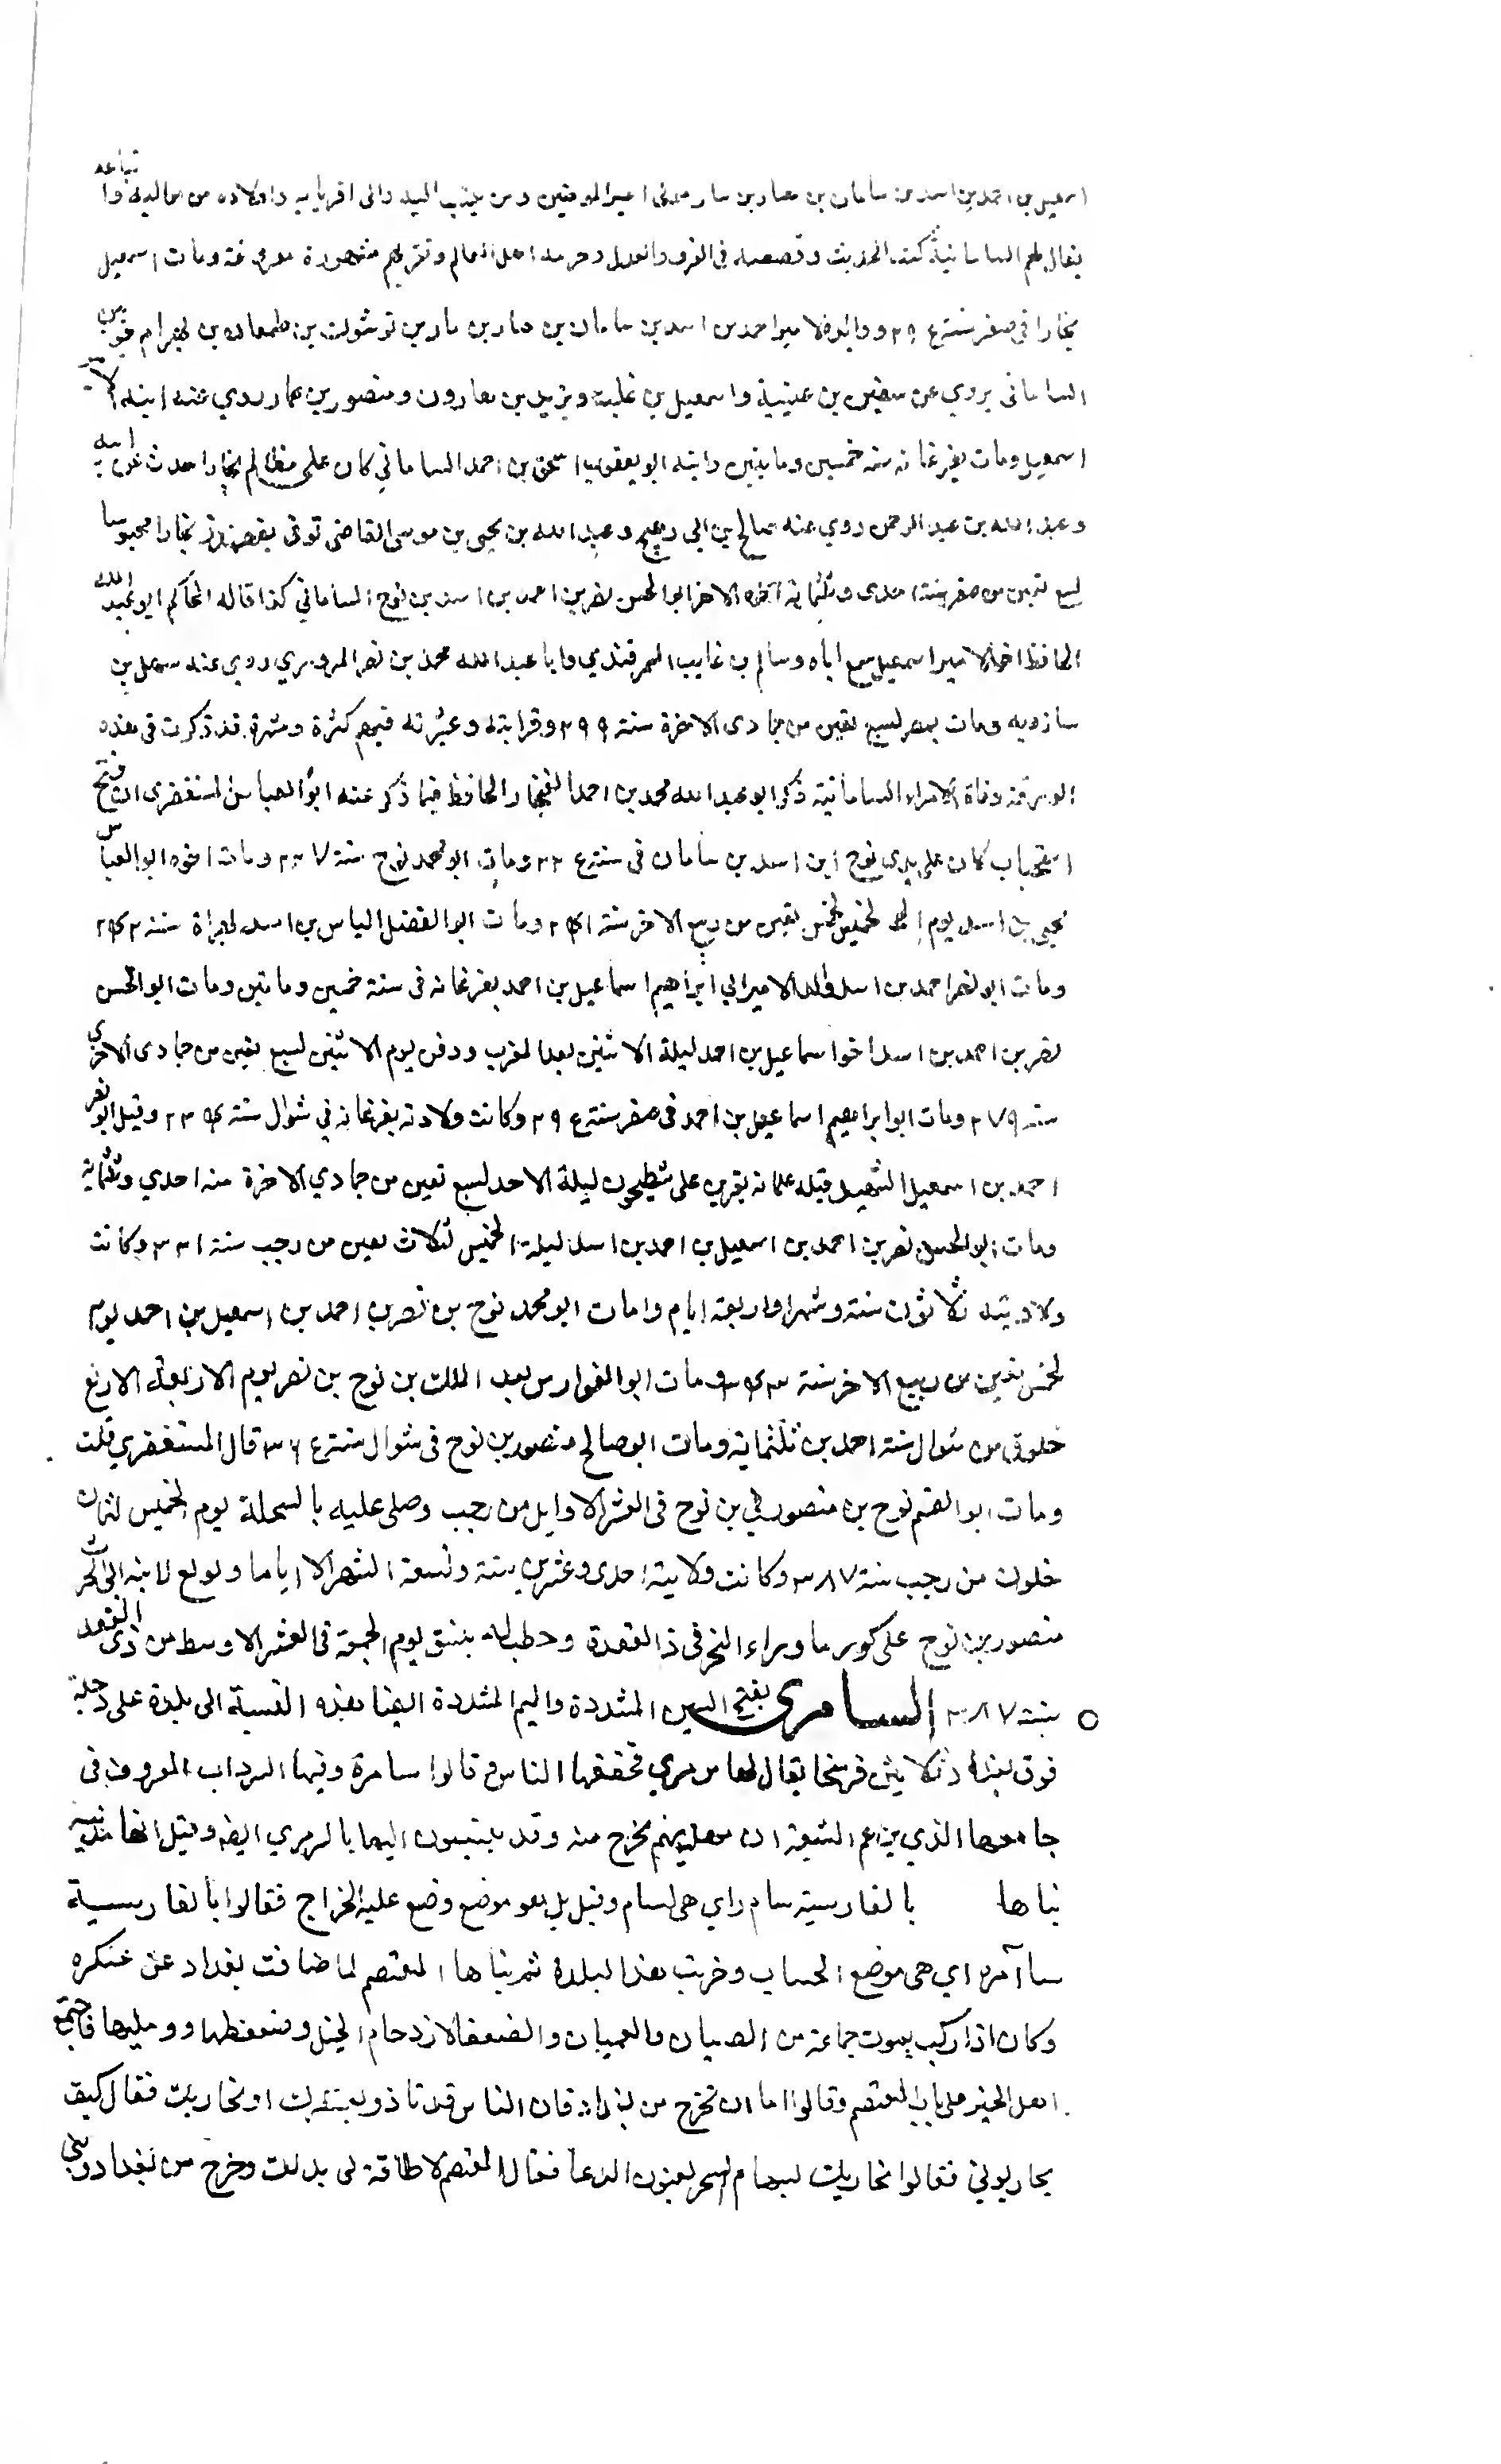 اسمعيل بن احمد بن اسد بن سامان بن مولى امير المومنين ومن ينسب اليه والى اقربايه واولاده من مماليكه واتباعه
يقال لهم السامانية كتب الحديث وقصصه في الغزو والعدل وحرمه اهل العالم وتقربهم مشهورة معروفة ومات اسمعيل
بخارا في صفر سنة ع ٢٩ ووالده الامير احمد بن اسد بن سامان بن بن طمغان بن بهرام جوبين
الساماني يروي عن سفين بن عيينة واسمعيل بن علية ويزيد بن هارون ومنصور بن عمار روي عنه ابنه الامير
اسمعيل ومات بفرغانه سنه خمسين وماتين وابنه ابو يعقوب اسحق بن احمد الساماني كان على مظالم بخارا حدث عن ابيه
وعبد الله بن عبد الرحمن روي عنه صالح بن ابي رميح وعبد الله بن يحيى بن موسى القاضي توفي بخارا محبوسا
لسبع بقين من صفر سنة احدى وثلثمايه اخوه الاخر ابو الحسن نصر بن احمد بن اسد بن نوح الساماني كذا قاله الحاكم ابو عبد الله
الحافظ اخو الامير اسمعيل سمع اباه وسالم بن غالب السمرقندي وابا عبد الله محمد بن نصر المروزي روي عنه سهل بن
شاذويه ومات لسبع بقين من جمادى الاخرة سنة ٢٩٩ وقرابته وعشرته فيهم كثرة وشهرة قد ذكرت في هذه
الورقة وفاة الامراء السامانية ذكر ابو عبد الله محمد بن احمد الغنجار الحافظ فيما ذكر عنه ابو العباس المستغفري ان فتح
اسفيجاب كان على يدي نوح ابن اسد بن سامان في سنة ع ٢٢ ومات ابو محمد نوح سنة ٢٢٧ ومات اخوه ابو العباس
يحيى بن اسد يوم الخميس لخمس بقين من ربيع الاخر سنة ٢٤١ ومات ابو الفضل الياس بن اسد بهراة سنة ٢٤٢
ومات ابو نصر احمد بن اسد والد الامير ابي ابراهيم اسماعيل بن احمد بفرغانه في سنة خمسين وماتين ومات ابو الحسن
نصر بن احمد بن اسد اخو اسماعيل بن احمد ليلة الاثنين بعد المغرب ودفن يوم الاثنين لسبع بقين من جمادى الاخرى
سنه ٢٧٩ ومات ابو ابراهيم اسماعيل بن احمد في صفر سنة ع ٢٩ وكانت ولادته بفرغانه في شوال سنة ٢٣٤ وقتل ابو نصر
احمد بن اسمعيل الشهيد قتله غلمانه بفربر على شط جيحون ليلة الاحد لسبع بقين من جمادي الاخرة سنه احدي وثلثماية
ومات ابو الحسن نصر بن احمد بن اسمعيل بن احمد بن اسد ليلة الخميس لثلاث بقين من رجب سنة ٣٣١ وكانت
ولايته ثلاثون سنة وشهرا واربعة ايام وامات ابو محمد نوح بن نصر بن احمد بن اسمعيل بن احمد يوم
لخمس بقين من ربيع الاخر سنة ٣٤٣ ومات ابو الفوارس عبد الملك بن نوح بن نصر يوم الاربعاء لاربع
خلون من شوال سنة احمد بن ثلثماية ومات ابو صالح منصور بن نوح في شوال سنة ع ٣٦ قال المستغفري قلت
ومات ابو القسم نوح بن منصور بن نوح في العشر الاوايل من رجب وصلى عليه بالسهلة يوم الخميس لثمان
خلون من رجب سنة ٣٨٧ وكانت ولايته احدى وعشرين سنة وتسعة اشهر الا اياما وبويع لابنه ابي الحرث
منصور بن نوح على كور ما وراء النهر في ذا القعدة وخطب له بنسف يوم الجمعة في العشر الاوسط من ذى القعدة
سنة ٣٨٧ السامري بفتح السين المشددة والميم المشددة ايضا هذه النسبة الى بلدة على دجلة
فوق بغداد ثلاثين فرسخا يقال لها سر مري فخففها الناس وقالوا سامرة وفيها السرداب المعروف في
جامعها الذي يزعم الشيعة ان مهديهم يخرج منه وقد ينسبون اليها بالسرمري ايضا وقيل انها مدينة
بناها بالفارسية سام راي هي لسام وقيل بل هو موضع وضع عليه الخراج فقالوا بالفارسية
ساآمره اي هي موضع الحساب وخربت هذا البلدة ثم بناها المعتصم لما ضاقت بغداد عن عسكره
وكان اذا ركب يموت جماعة من الصبيان والعميان والضعفا لازدحام الخيل وضغطها فاجتمع
اهل الخير على باب المعتصم وقالوا اما ان تخرج من بغداد فان الناس قد تاذوا بعسكرك او نحاربك فقال كيف
تحاربوني فقالوا نحاربك بسهام السحر يعنون الدعا فقال المعتصم لا طاقة لي بذلك وخرج من بغداد وبنى